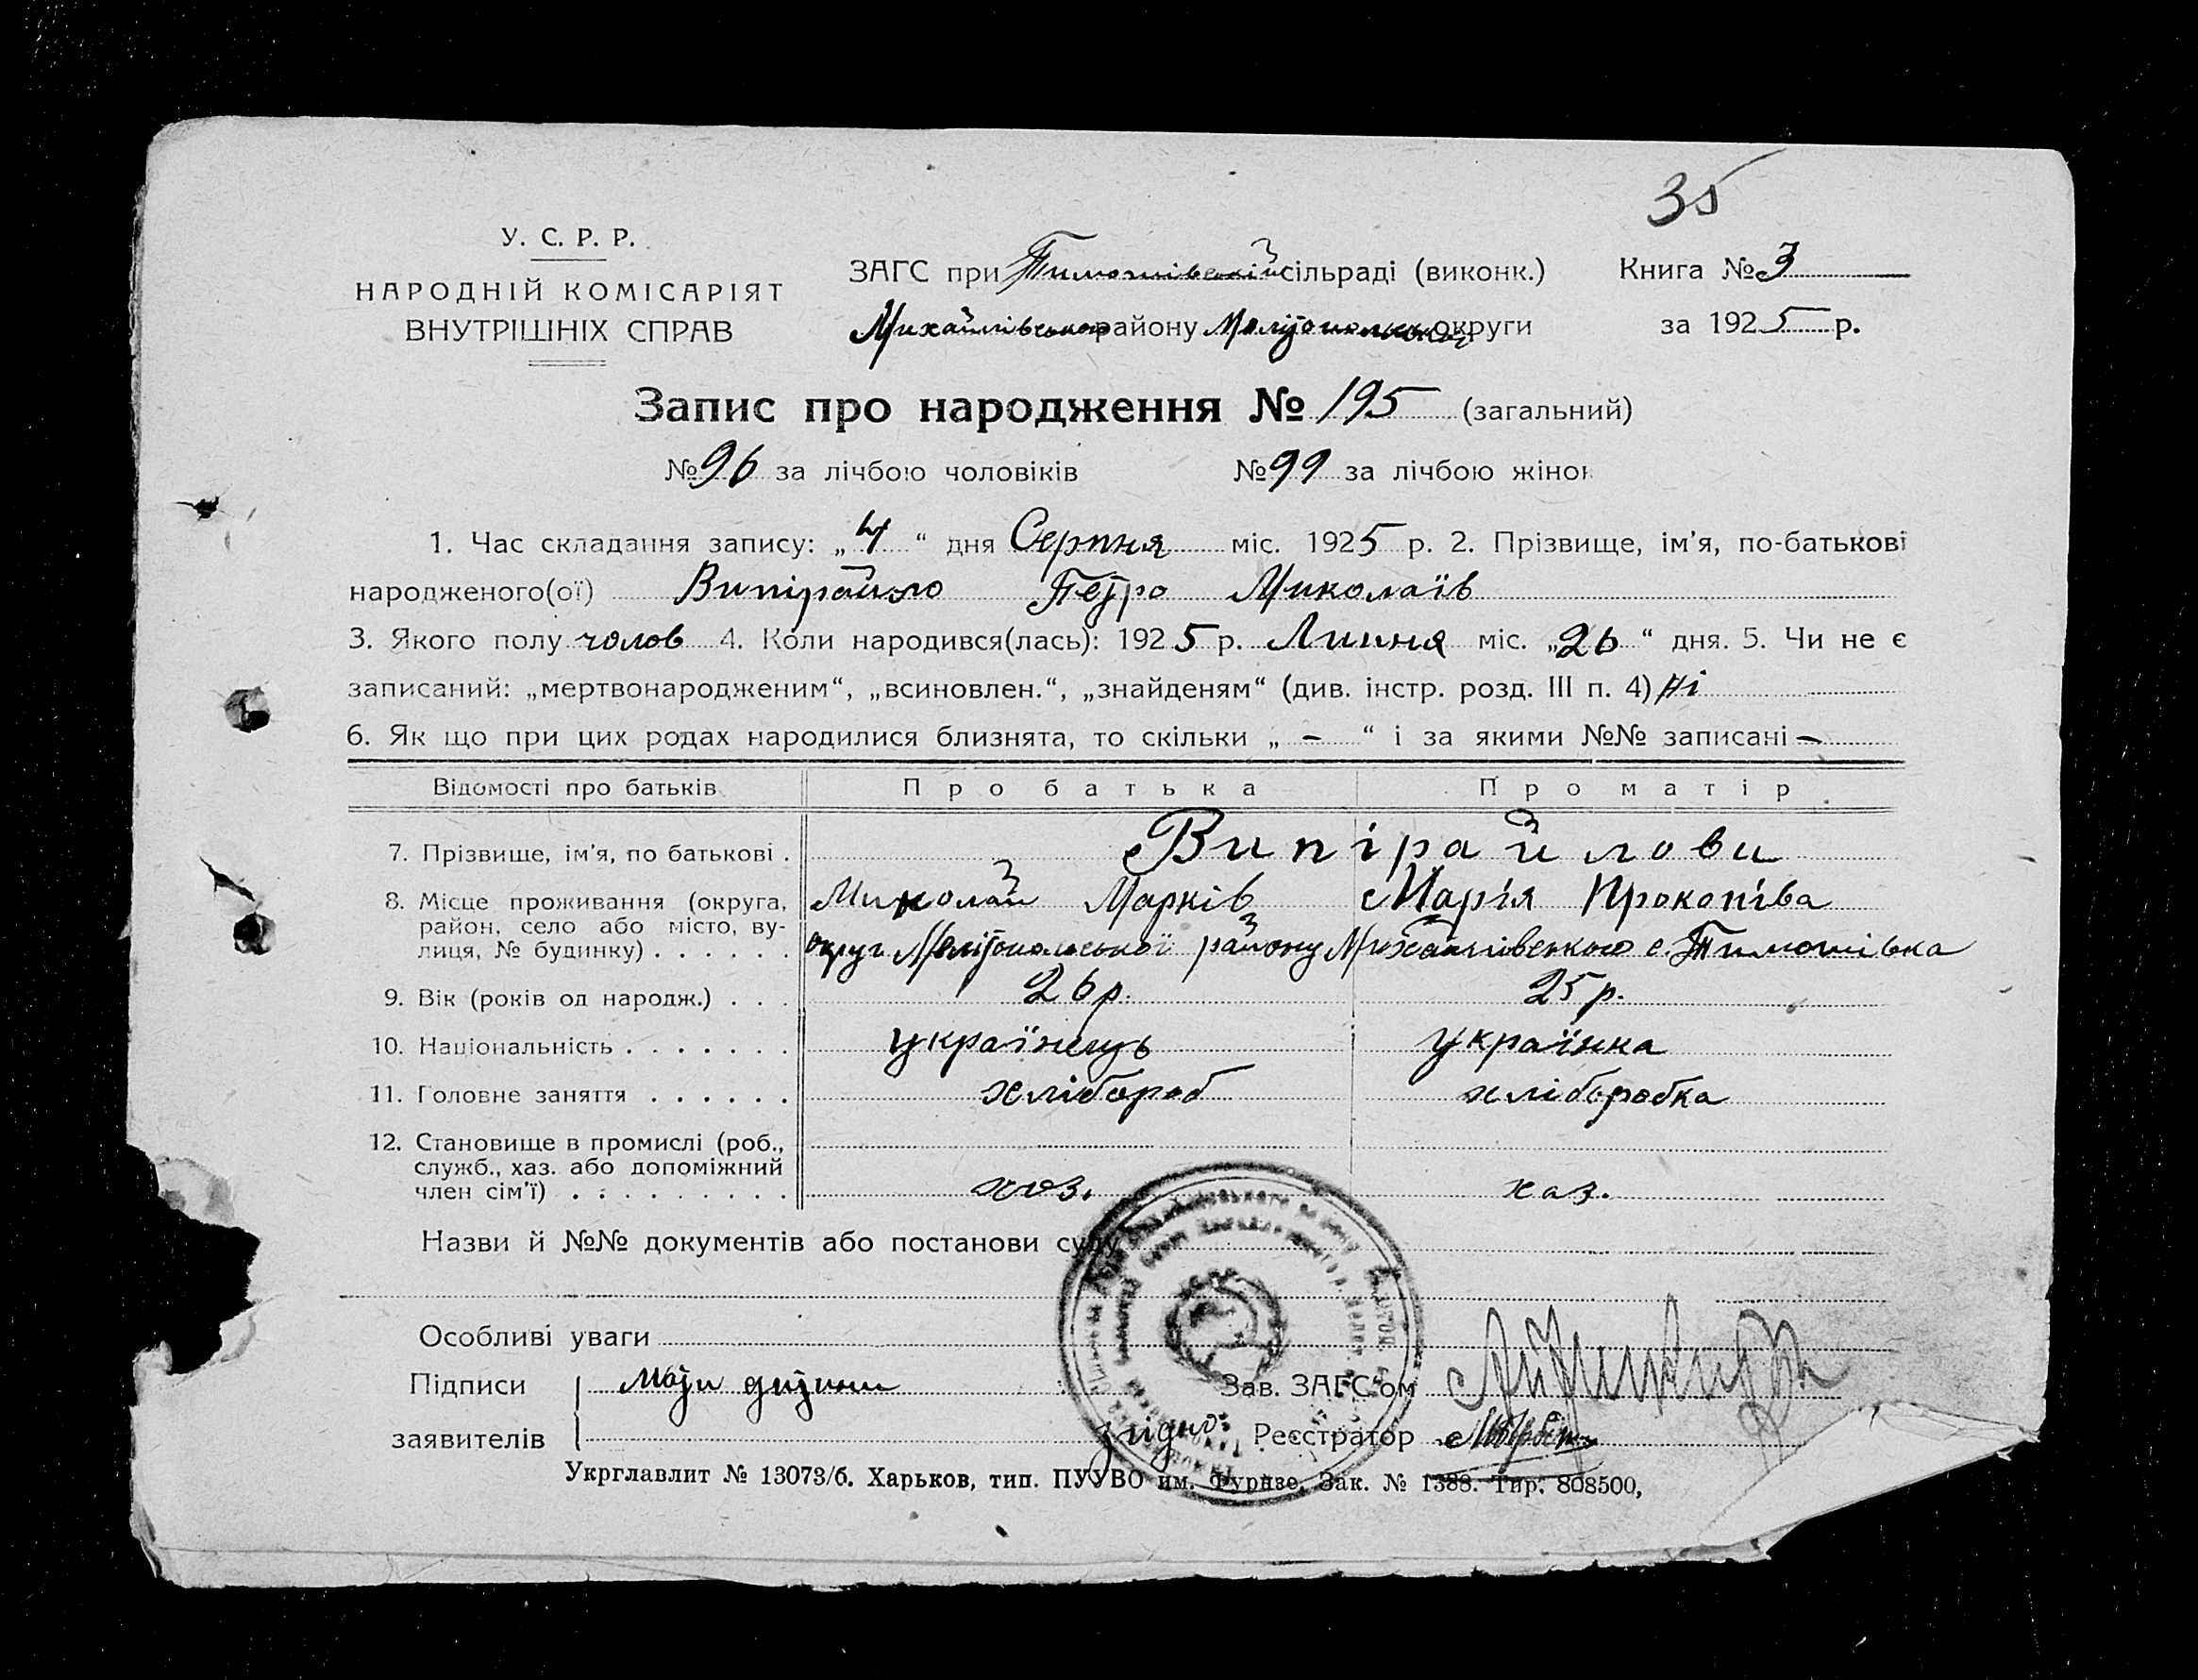 35
У. С. Р. Р.
НАРОДНІЙ КОМІСАРІЯТ
ВНУТРІШНІХ СПРАВ
ЗАГС при Тимошівській сільраді (виконк.)
Михайлівського району Мелітопольської округи
Книга № 3
за 1925 р.
Запис про народження № 195 (загальний)
№ 96 за лічбою чоловіків № 99 за лічбою жінок
1. Час складання запису: „4“ дня Серпня міс. 1925 р. 2. Прізвище, ім’я, по-батькові
народженого(ої) Випірайло Петро Миколаїв
3. Якого полу чолов 4. Коли народився(лась): 1925 р. Липня міс. „26“ дня. 5. Чи не є
записаний: „мертвонародженим“, „всиновлен.“, „знайденям“ (див. інстр. розд. III п. 4) Ні
6. Як що при цих родах народилися близнята, то скільки „ – “ і за якими №№ записані –
Відомості про батьків Про батька Про матір
7. Прізвище, ім’я, по батькові . Випірайлови
Миколай Марків Марія Прокопіва
8. Місце проживання (округа, район, село або місто, вулиця, № будинку) . . . . . . округ Мелітопольської району Михайлівського с. Тимошівка
9. Вік (років од народж.) . . . 26 р. 25 р.
10. Національність . . . . . . . українець українка
11. Головне заняття . . . . . . хлібороб хліборобка
12. Становище в промислі (роб., служб., хаз. або допоміжний член сім’ї) . . . . . . . . . хоз. хаз.
Назви й №№ документів або постанови суду
Особливі уваги
Підписи заявителів Мати дитини
Зав. ЗАГС’ом
згідно: Реєстратор
Укрглавлит № 13073/б. Харьков, тип. ПУУВО им. Фрунзе, Зак. № 1388. Тир. 808500,